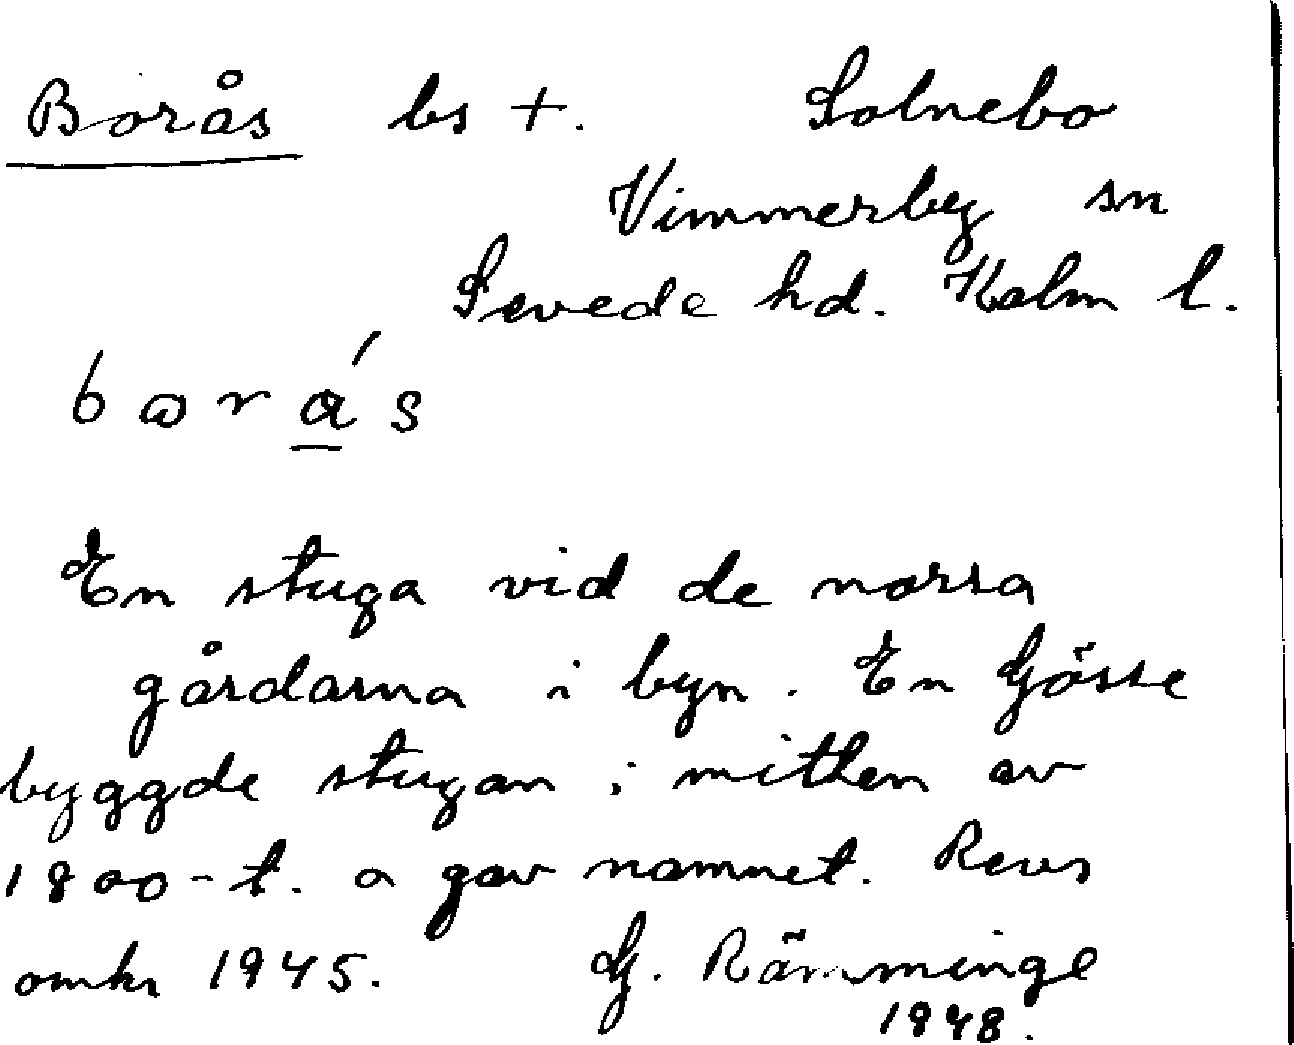 Borås bs +. Solnebo
Vimmerby sn
Sevede hd. Kalm l.
bωrá̲s
En stuga vid de norra
gårdarna i byn. En Gösse
byggde stugan i mitten av
1800-t. o gav namnet. Revs
omkr 1945. G. Rämminge
1948.